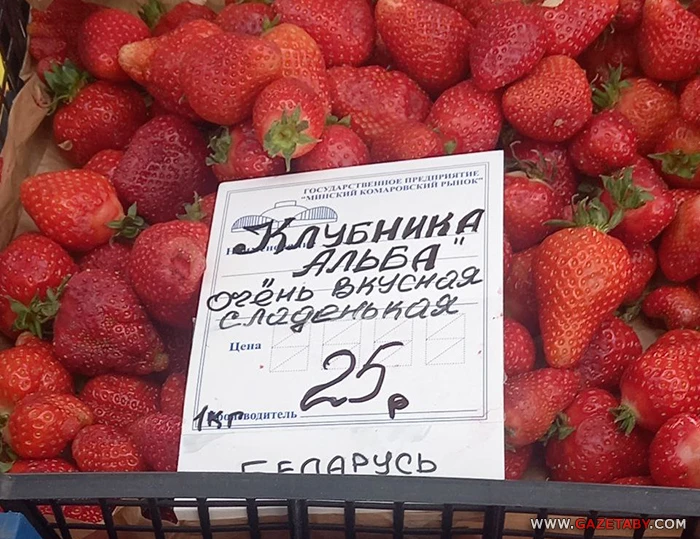 ГОСУДАРСТВЕННОЕ ПРЕДПРИЯТИЕ
"МИНСКИЙ КОМАРОВСКИЙ РЫНОК"
"КЛУБНИКА
АЛЬБА"
ОЧЁНЬ ВКУСНАЯ
СЛАДЕНЬКАЯ
Цена
25 р
1КГ
Производитель
БЕЛАРУСЬ
WWW.GAZETABY.COM